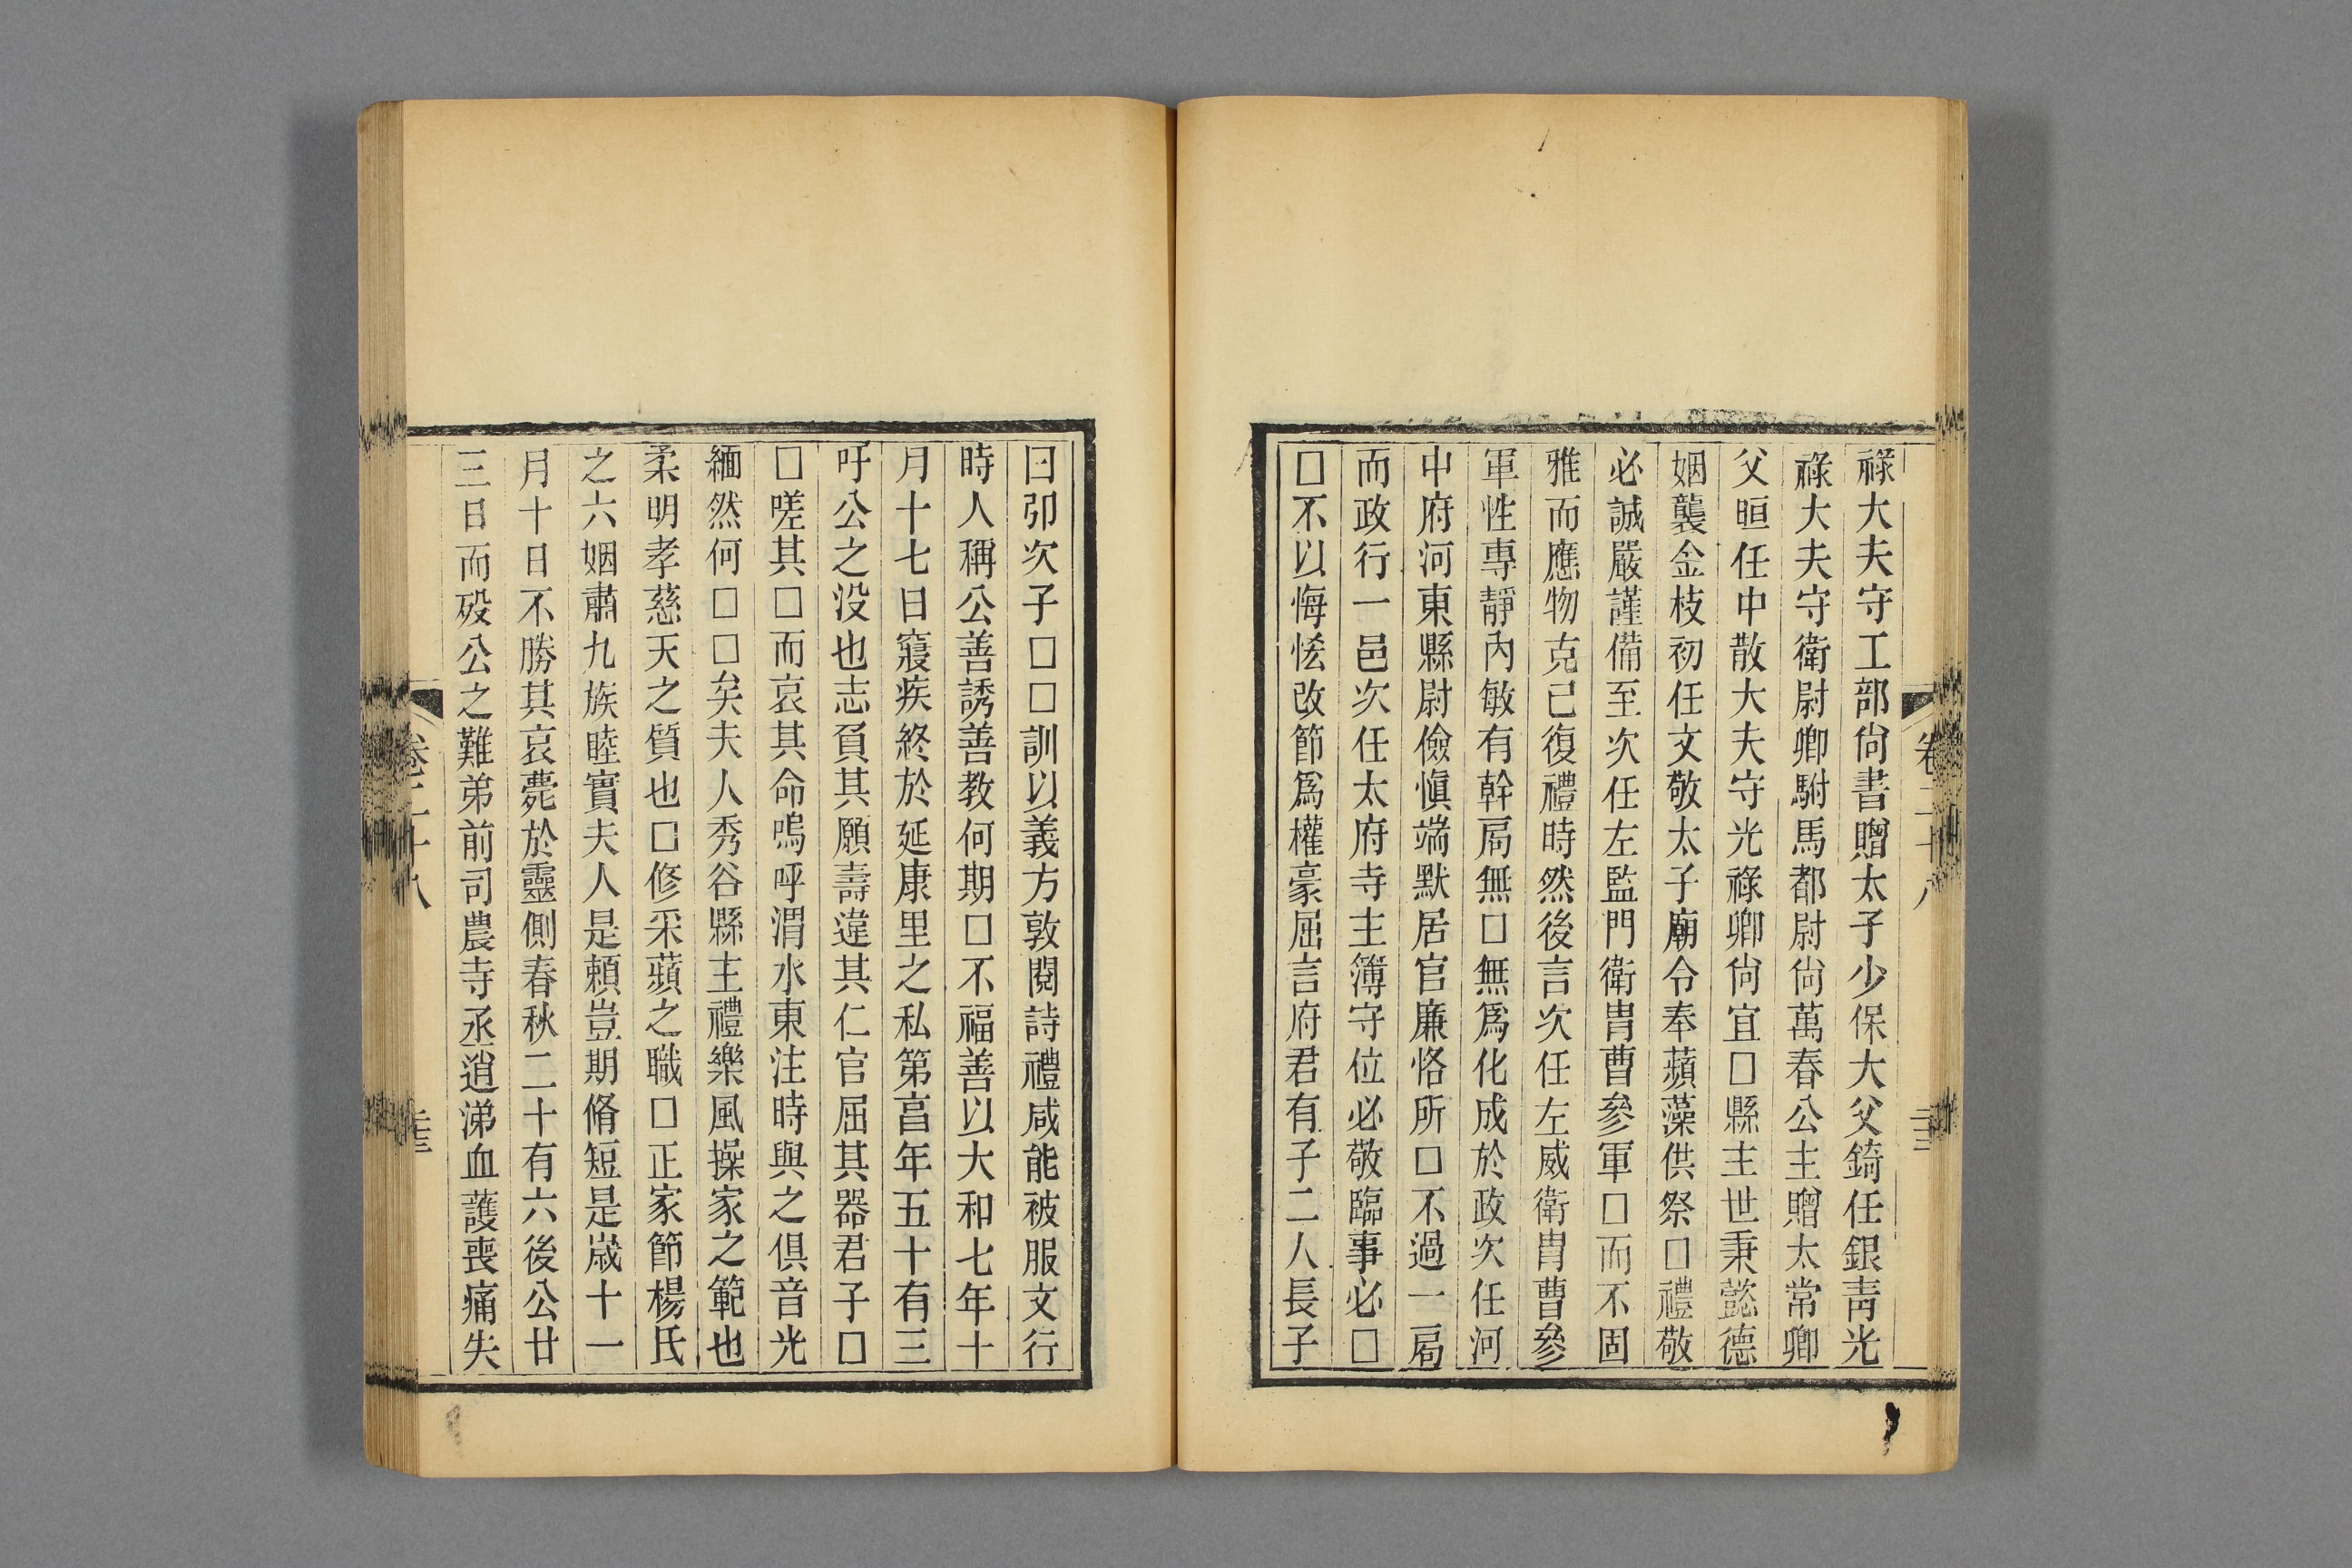 祿大夫守工部尙書贈太子少保大父錡任銀靑光
祿大夫守衛尉卿駙馬都尉尙萬春公主贈太常卿
父晅任中散大夫守光祿卿尙宜□縣主世秉懿德
姻襲金枝初任文敬太子廟令奉蘋藻供祭□禮敬
必誠嚴謹備至次任左監門衛胄曹參軍□而不固
雅而應物克已復禮時然後言次任左威衛胄曹參
軍性專靜內敏有幹局無□無爲化成於政次任河
中府河東縣尉儉愼端默居官廉恪所□不過一局
而政行一邑次任太府寺主簿守位必敬臨事必□
□不以悔恡改節爲權豪屈言府君有子二人長子
曰卭次子□□訓以義方敦閱詩禮咸能被服文行
時人稱公善誘善教何期□不福善以大和七年十
月十七日寢疾終於延康里之私第亯年五十有三
吁公之没也志負其願壽違其仁官屈其器君子□
□嗟其□而哀其命嗚呼渭水東注時與之俱音光
緬然何□□矣夫人秀谷縣主禮樂風操家之範也
柔明孝慈天之質也□修采蘋之職□正家節楊氏
之六姻肅九族睦實夫人是賴豈期脩短是歲十一
月十日不勝其哀薨於靈側春秋二十有六後公廿
三日而殁公之難弟前司農寺丞逍涕血護喪痛失
卷二十八